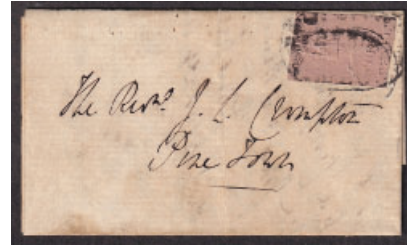 The Revd. J. L. Crompton
Pine Town